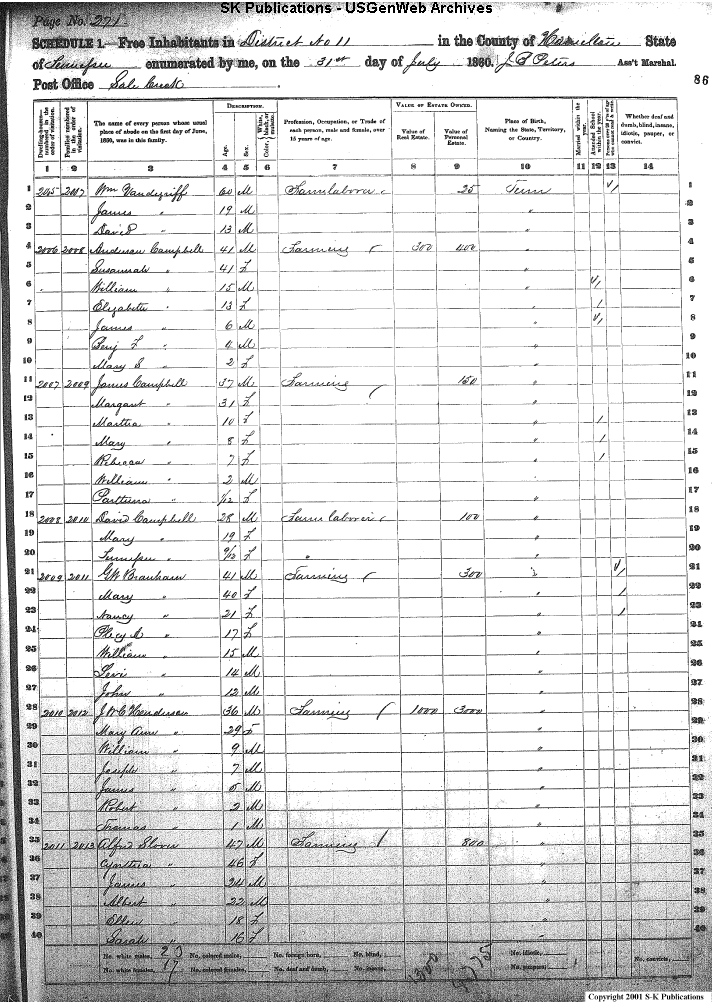 SK Publications - USGenWeb Archives
Page No. 221
SCHEDULE 1.—Free Inhabitants in District No 11 in the County of Hamilton State
of Tennessee enumerated by me, on the 31st day of July 1860. J B Peters Ass't Marshal.
Post Office Sale Creek
86
Dwelling-houses—numbered in the order of visitation.
Families numbered in the order of visitation.
The name of every person whose usual place of abode on the first day of June, 1860, was in this family.
DESCRIPTION.
Age.
Sex.
Color, White, black, or mulatto.
Profession, Occupation, or Trade of each person, male and female, over 15 years of age.
VALUE OF ESTATE OWNED.
Value of Real Estate.
Value of Personal Estate.
Place of Birth, Naming the State, Territory, or Country.
Married within the year.
Attended School within the year.
Persons over 20 y'rs of age who cannot read & write.
Whether deaf and dumb, blind, insane, idiotic, pauper, or convict.
1 2 3 4 5 6 7 8 9 10 11 12 13 14
1 2007 Wm Vandegriff 60 M Farm laborer 25 Tenn / 1
2 James " 19 M " 2
3 David " 13 M " 3
4 2006 2008 Anderson Campbell 41 M Farming 300 400 " 4
5 Susannah " 41 F " 5
6 William " 15 M " / 6
7 Elizabeth " 13 F " / 7
8 James " 6 M " / 8
9 Benj F " 4 M " 9
10 Mary S " 2 F " 10
11 2007 2009 James Campbell 37 M Farming 150 " 11
12 Margaret " 31 F " 12
13 Martha " 10 F " / 13
14 Mary " 8 F " / 14
15 Rebecca " 7 F " / 15
16 William " 2 M " 16
17 " 1/12 F " 17
18 2008 2010 David Campbell 28 M Farm laborer 100 " 18
19 Mary " 19 F " 19
20 Tennessee " 9/12 F " " 20
21 2009 2011 GW Branham 41 M Farming 300 " / 21
22 Mary " 40 F " / 22
23 Nancy " 21 F " / 23
24 " 17 F " 24
25 William " 15 M " 25
26 Levi " 14 M " 26
27 John " 12 M " 27
28 2010 2012 J W C Henderson 36 M Farming 1000 3000 " 28
29 Mary Ann " 29 F " 29
30 William " 9 M " 30
31 Joseph " 7 M " 31
32 James " 5 M " 32
33 Robert " 2 M " 33
34 Thomas " 1 M " 34
35 2011 2013 Alfred Slover 47 M Farming 800 " 35
36 Cynthia " 46 F " 36
37 James " 24 M " 37
38 Albert " 22 M " 38
39 Ellen " 18 F " 39
40 Sarah " 16 F " 40
No. white males, 23 No. colored males, No. foreign born, No. blind, 1300 No. idiotic, No. convicts,
No. white females, 17 No. colored females, No. deaf and dumb, No. insane, 4775 No. paupers,
Copyright 2001 S-K Publications